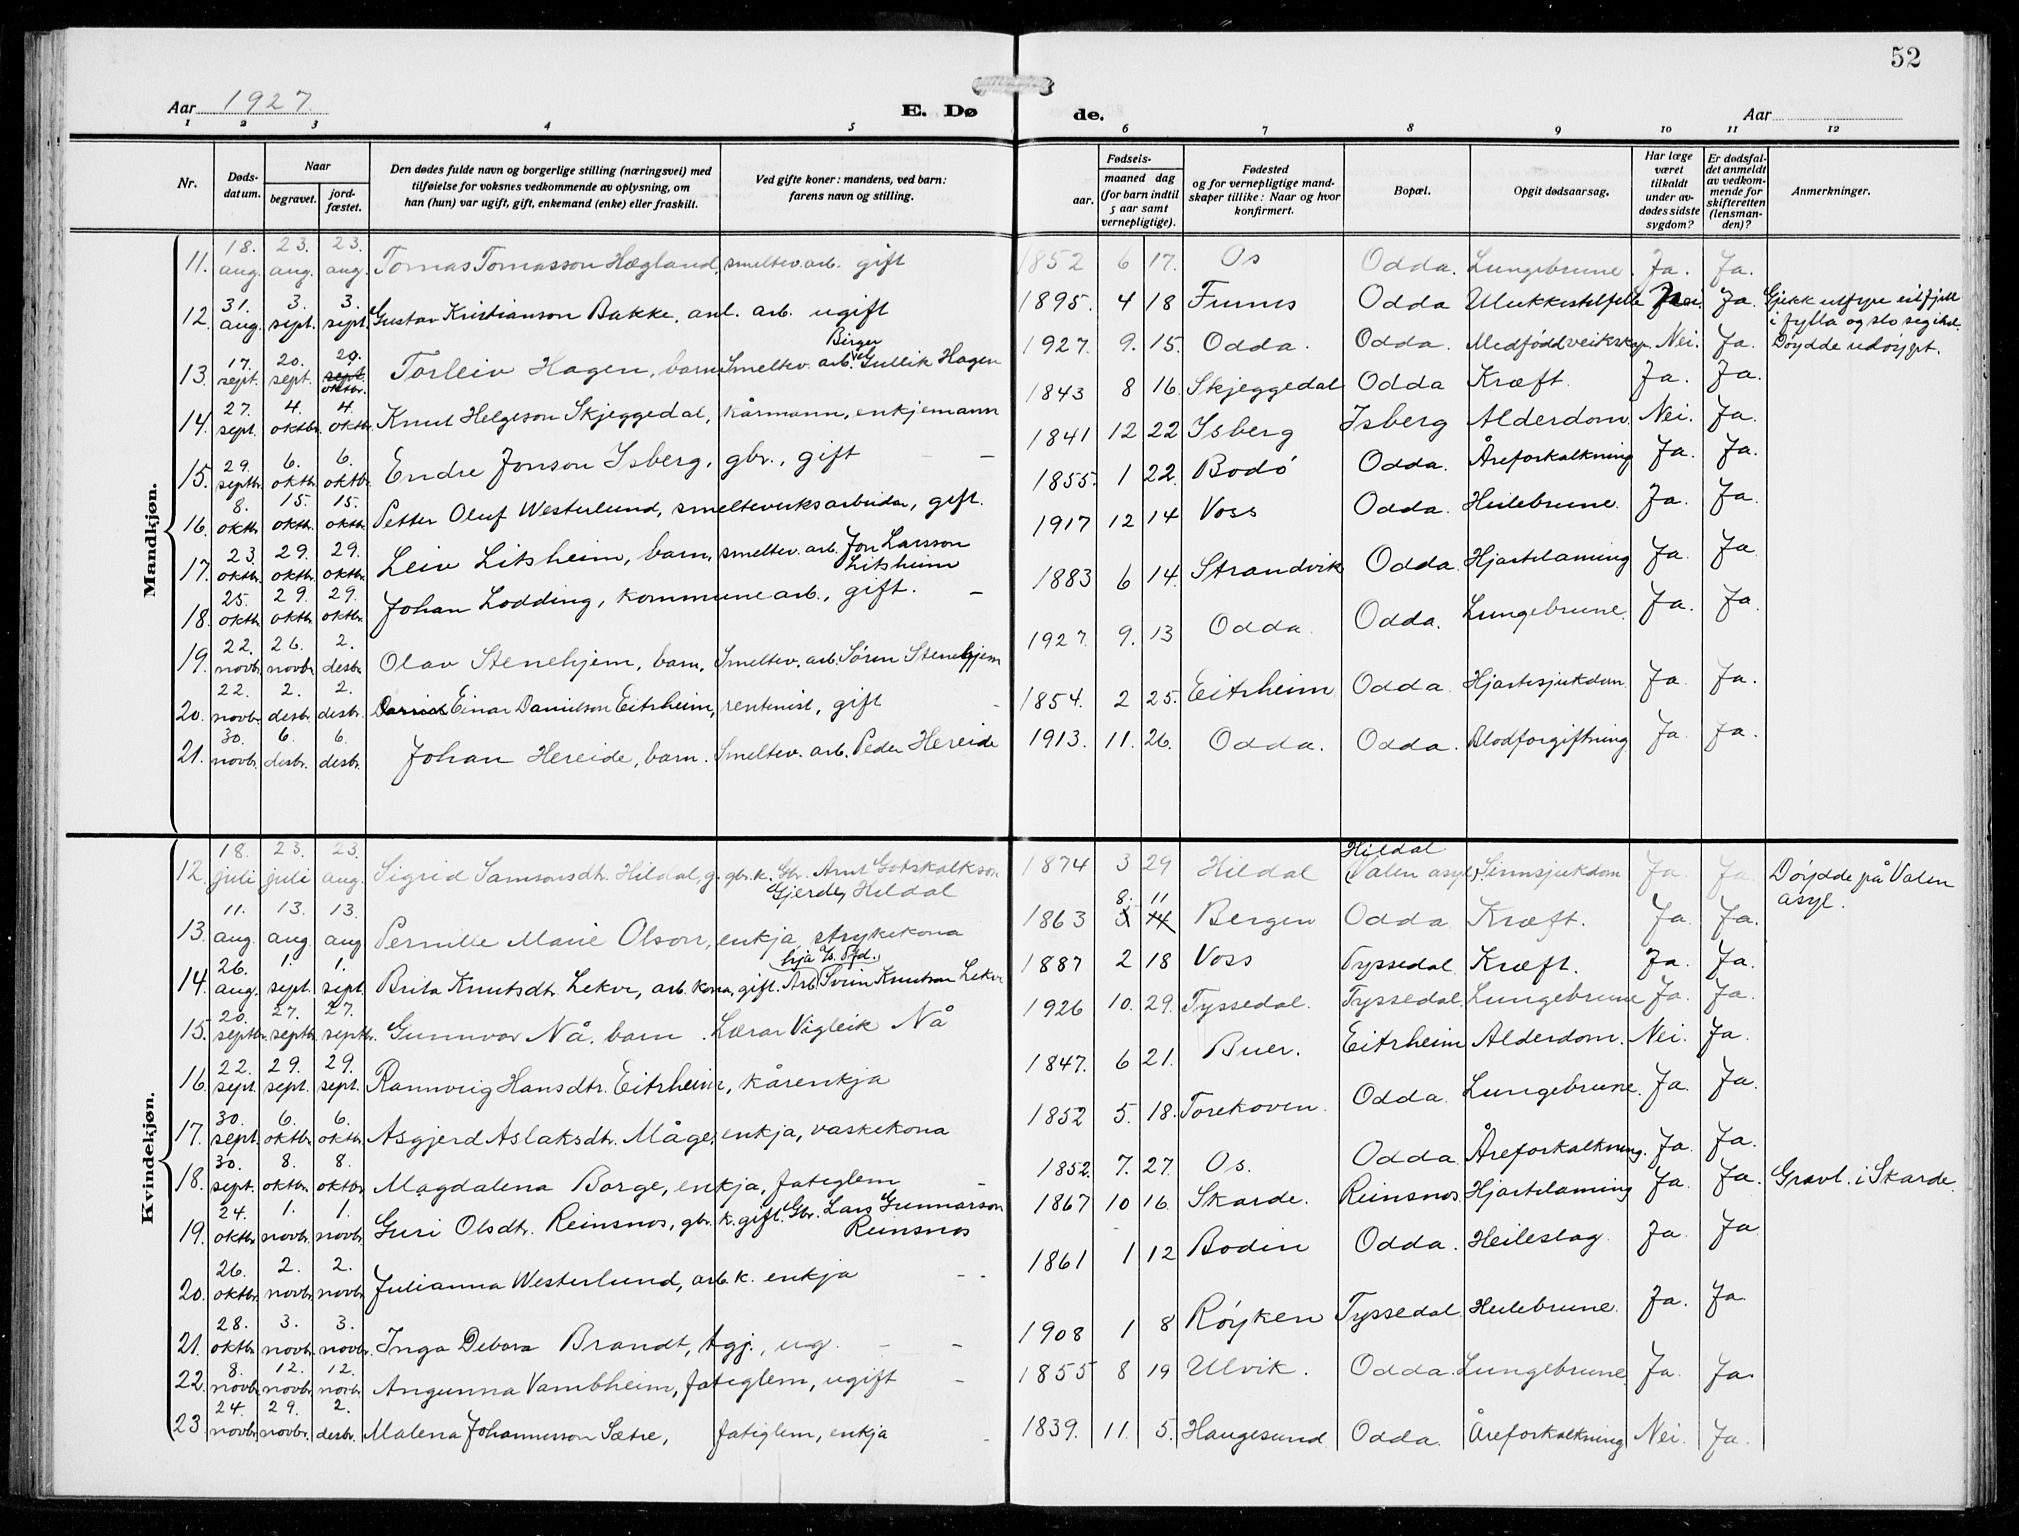 52
Aar 1927.
E. Døde.
Aar
1 2 3 4 5 6 7 8 9 10 11 12
Nr.
Dødsdatum.
Naar
begravet.
jordfæstet.
Den dødes fulde navn og borgerlige stilling (næringsvei) med
tilføielse for voksnes vedkommende av oplysning, om
han (hun) var ugift, gift, enkemand (enke) eller fraskilt.
Ved gifte koner: mandens, ved barn:
farens navn og stilling.
Fødsels-
aar. maaned dag
(for barn indtil
5 aar samt
vernepligtige).
Fødested
og for vernepligtige mand-
skaper tillike: Naar og hvor
konfirmert.
Bopæl.
Opgit dødsaarsag.
Har læge
været
tilkaldt
under av-
dødes sidste
sygdom?
Er dødsfal-
det anmeldt
av vedkom-
mende for
skifteretten
(lensman-
den)?
Anmerkninger.
Mandkjøn.
11. 18. aug. 23. aug. 23. aug. Tomas Tomasson Hægland, smeltev. arb. gift 1852 6 17. Os Odda. Lungebrune. Ja. Ja.
12. 31. aug. 3. sept. 3. sept. Gustav Kristianson Bakke, anl. arb. ugift 1895. 4 18 Odda Ulukkestilfelle Nei. Ja. Gjekk utfyre eit fjell
i fylla og slo seg ihel.
13. 17. sept. 20. sept. 20. sept. oktbr. Torleiv Hagen, barn Smeltev. arb. Birger Gullik Hagen 1927. 9. 15. Odda. Odda. Medfødd veikskap Nei. Ja. Døydde udøypt.
14. 27. sept. 4. oktbr. 4. oktbr. Knut Helgeson Skjeggedal, kårmann, enkjemann 1843 8 16. Skjeggedal Odda Kræft. Ja. Ja.
15. 29. septbr. 6. oktbr. 6. oktbr. Endre Jonson Isberg, gbr., gift 1841 12 22 Isberg Isberg Alderdom Nei. Ja.
16. 8. oktbr. 15. oktbr. 15. oktbr. Petter Oluf Westerlund, smelteverksarbeider, gift. 1855. 1 22. Bodø Odda. Åreforkalkning Ja. Ja.
17. 23. oktbr. 29. oktbr. 29. oktbr. Leiv Litsheim, barn, smeltev. arb. Jon Larsson
Litsheim 1917 12 14 Voss Odda. Heilebrune. Ja. Ja.
18. 25. oktbr. 29. oktbr. 29. oktbr. Johan Lodding, kommunearb., gift. 1883 6 14. Strandvik Odda. Hjartelaming Ja. Ja
19. 22. novbr. 26. novbr. 2. desbr. Olav Stenehjem, barn, Smeltev. arb. Søren Stenehjem 1927. 9. 13 Odda. Odda. Lungebrune. Ja. Ja.
20. 22. novbr. 2. desbr. 2. desbr. Einar Danielson Eitrheim, rentenist, gift 1854. 2 25. Eitrheim Odda. Hjartesjukdom Ja. Ja.
21. 30. novbr. 6. desbr. 6. desbr. Johan Hereide, barn. Smeltev. arb. Peder Hereide 1913. 11. 26. Odda. Odda. Blodforgiftning Ja. Ja.
Kvindekjøn.
12. 18. juli 23. juli 23. aug. Sigrid Samsonsdtr. Hildal, g. gbr. k. Gbr. Arnt Gotskalkson
Gjerde, Hildal 1874 3 29 Hildal Hildal
Valen asyl. Sinnsjukdom Ja. Ja. Døydde på Valen
asyl.
13. 11. aug. 13. aug. 13. aug. Pernille Marie Olson, enkja, strykekona 1863 8. 11 Bergen Odda. Kræft. Ja. Ja.
14. 26. aug. 1. sept. 1. sept. Brita Knutsdtr. Lekve, arb. kona, gift. Arb. Svein Knutson Lekve 1887 2 18 Voss Tyssedal. Kræft. Ja. Ja.
15. 20. septbr. 27. septbr. 27. septbr. Gunnvor Nå, barn. Lærar Vigleik Nå 1926 10. 29. Tyssedal. Tyssedal. Lungebrune Ja. Ja.
16. 22. sept. 29. sept. 29. sept. Rannveig Hansdtr. Eitrheim, kårenkja 1847. 6 21. Buer. Eitrheim Alderdom. Nei. Ja.
17. 30. sept. 6. oktbr. 6. oktbr. Asgjerd Aslaksdtr. Måge, enkja, vaskekona 1852 5. 18. Torekoven. Odda. Lungebrune. Ja. Ja.
18. 30. sept. 8. oktbr. 8. oktbr. Magdalena Borge, enkja, fatiglem 1852. 7. 27. Os. Odda. Åreforkalkning. Ja. Ja.
19. 24. oktbr. 1. novbr. 1. novbr. Guri Olsdtr. Reinsnos, gbr. k. gift. Gbr. Lars Gunnarson
Reinsnos 1867 10 16. Skarde. Reinsnos Hjartelaming Ja. Ja. Gravl. i Skarde.
20. 26. oktbr. 2. novbr. 2. novbr. Julianna Westerlund, arb. k. enkja 1861 1 12 Bodin Odda. Heileslag Ja. Ja
21. 28. oktbr. 3. novbr. 3. novbr. Inga Debora Brandt, tgj., ug. 1908 1 8 Røyken Tyssedal. Heilebrune. Ja. Ja.
22. 8. novbr. 12. novbr. 12. novbr. Angunna Vambheim, fatiglem, ugift 1855 8 19 Ulvik. Odda. Lungebrune Ja. Ja.
23. 24. novbr. 29. novbr. 2. desbr. Malena Johannesson Sætre, fatiglem, enkja 1839. 11. 5. Haugesund Odda. Åreforkalkning Nei. Ja.